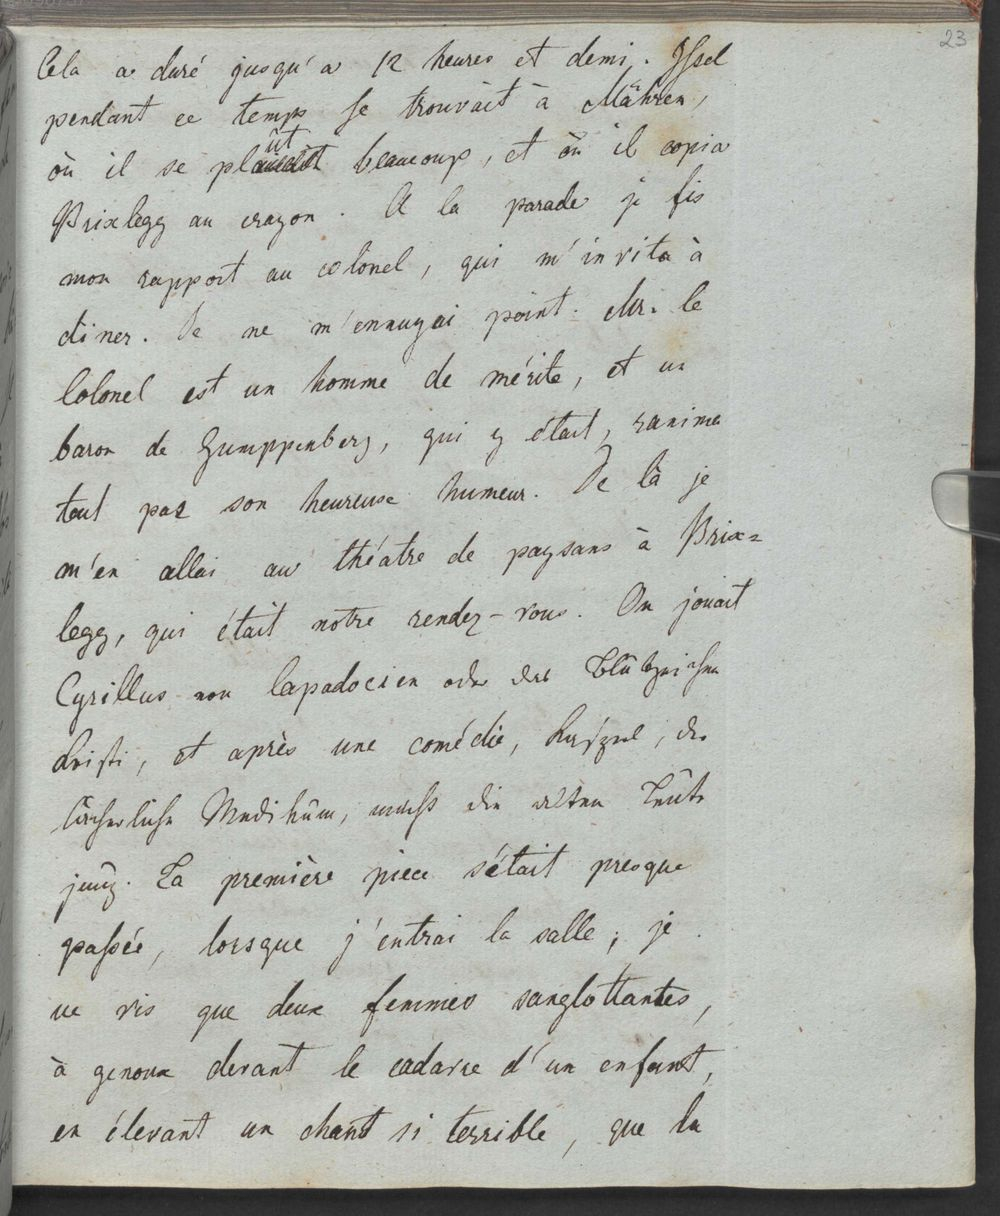 23
Cela a duré jusqu'a 12 heures et demi. Issel
pendant ce temps se trouvait à Mähren,
où il se plaût beaucoup, et où il copia
Brixlegg au crayon. A la parade je fis
mon rapport au colonel, qui m'invita à
diner. Je ne m'ennuyai point. Mr. le
Colonel est un homme de mérite, et un
baron de Gumppenberg, qui y était, ranima
tout par son heureuse humeur. De là je
m'en allai au théatre de paysans à Brix=
legg, qui était notre rendez-vous. On jouait
Cyrillus von Capadocien oder das Blûtzeichen
Kristi, et après une comédie, der
lächerliche Medikûm, macht die alten Leûte
jung. La première piece s'était presque
passée, lorsque j'entrai la salle; je
ne vis que deux femmes sanglottantes,
à genoux devant le cadavre d'un enfant,
en élevant un chant si terrible, que la